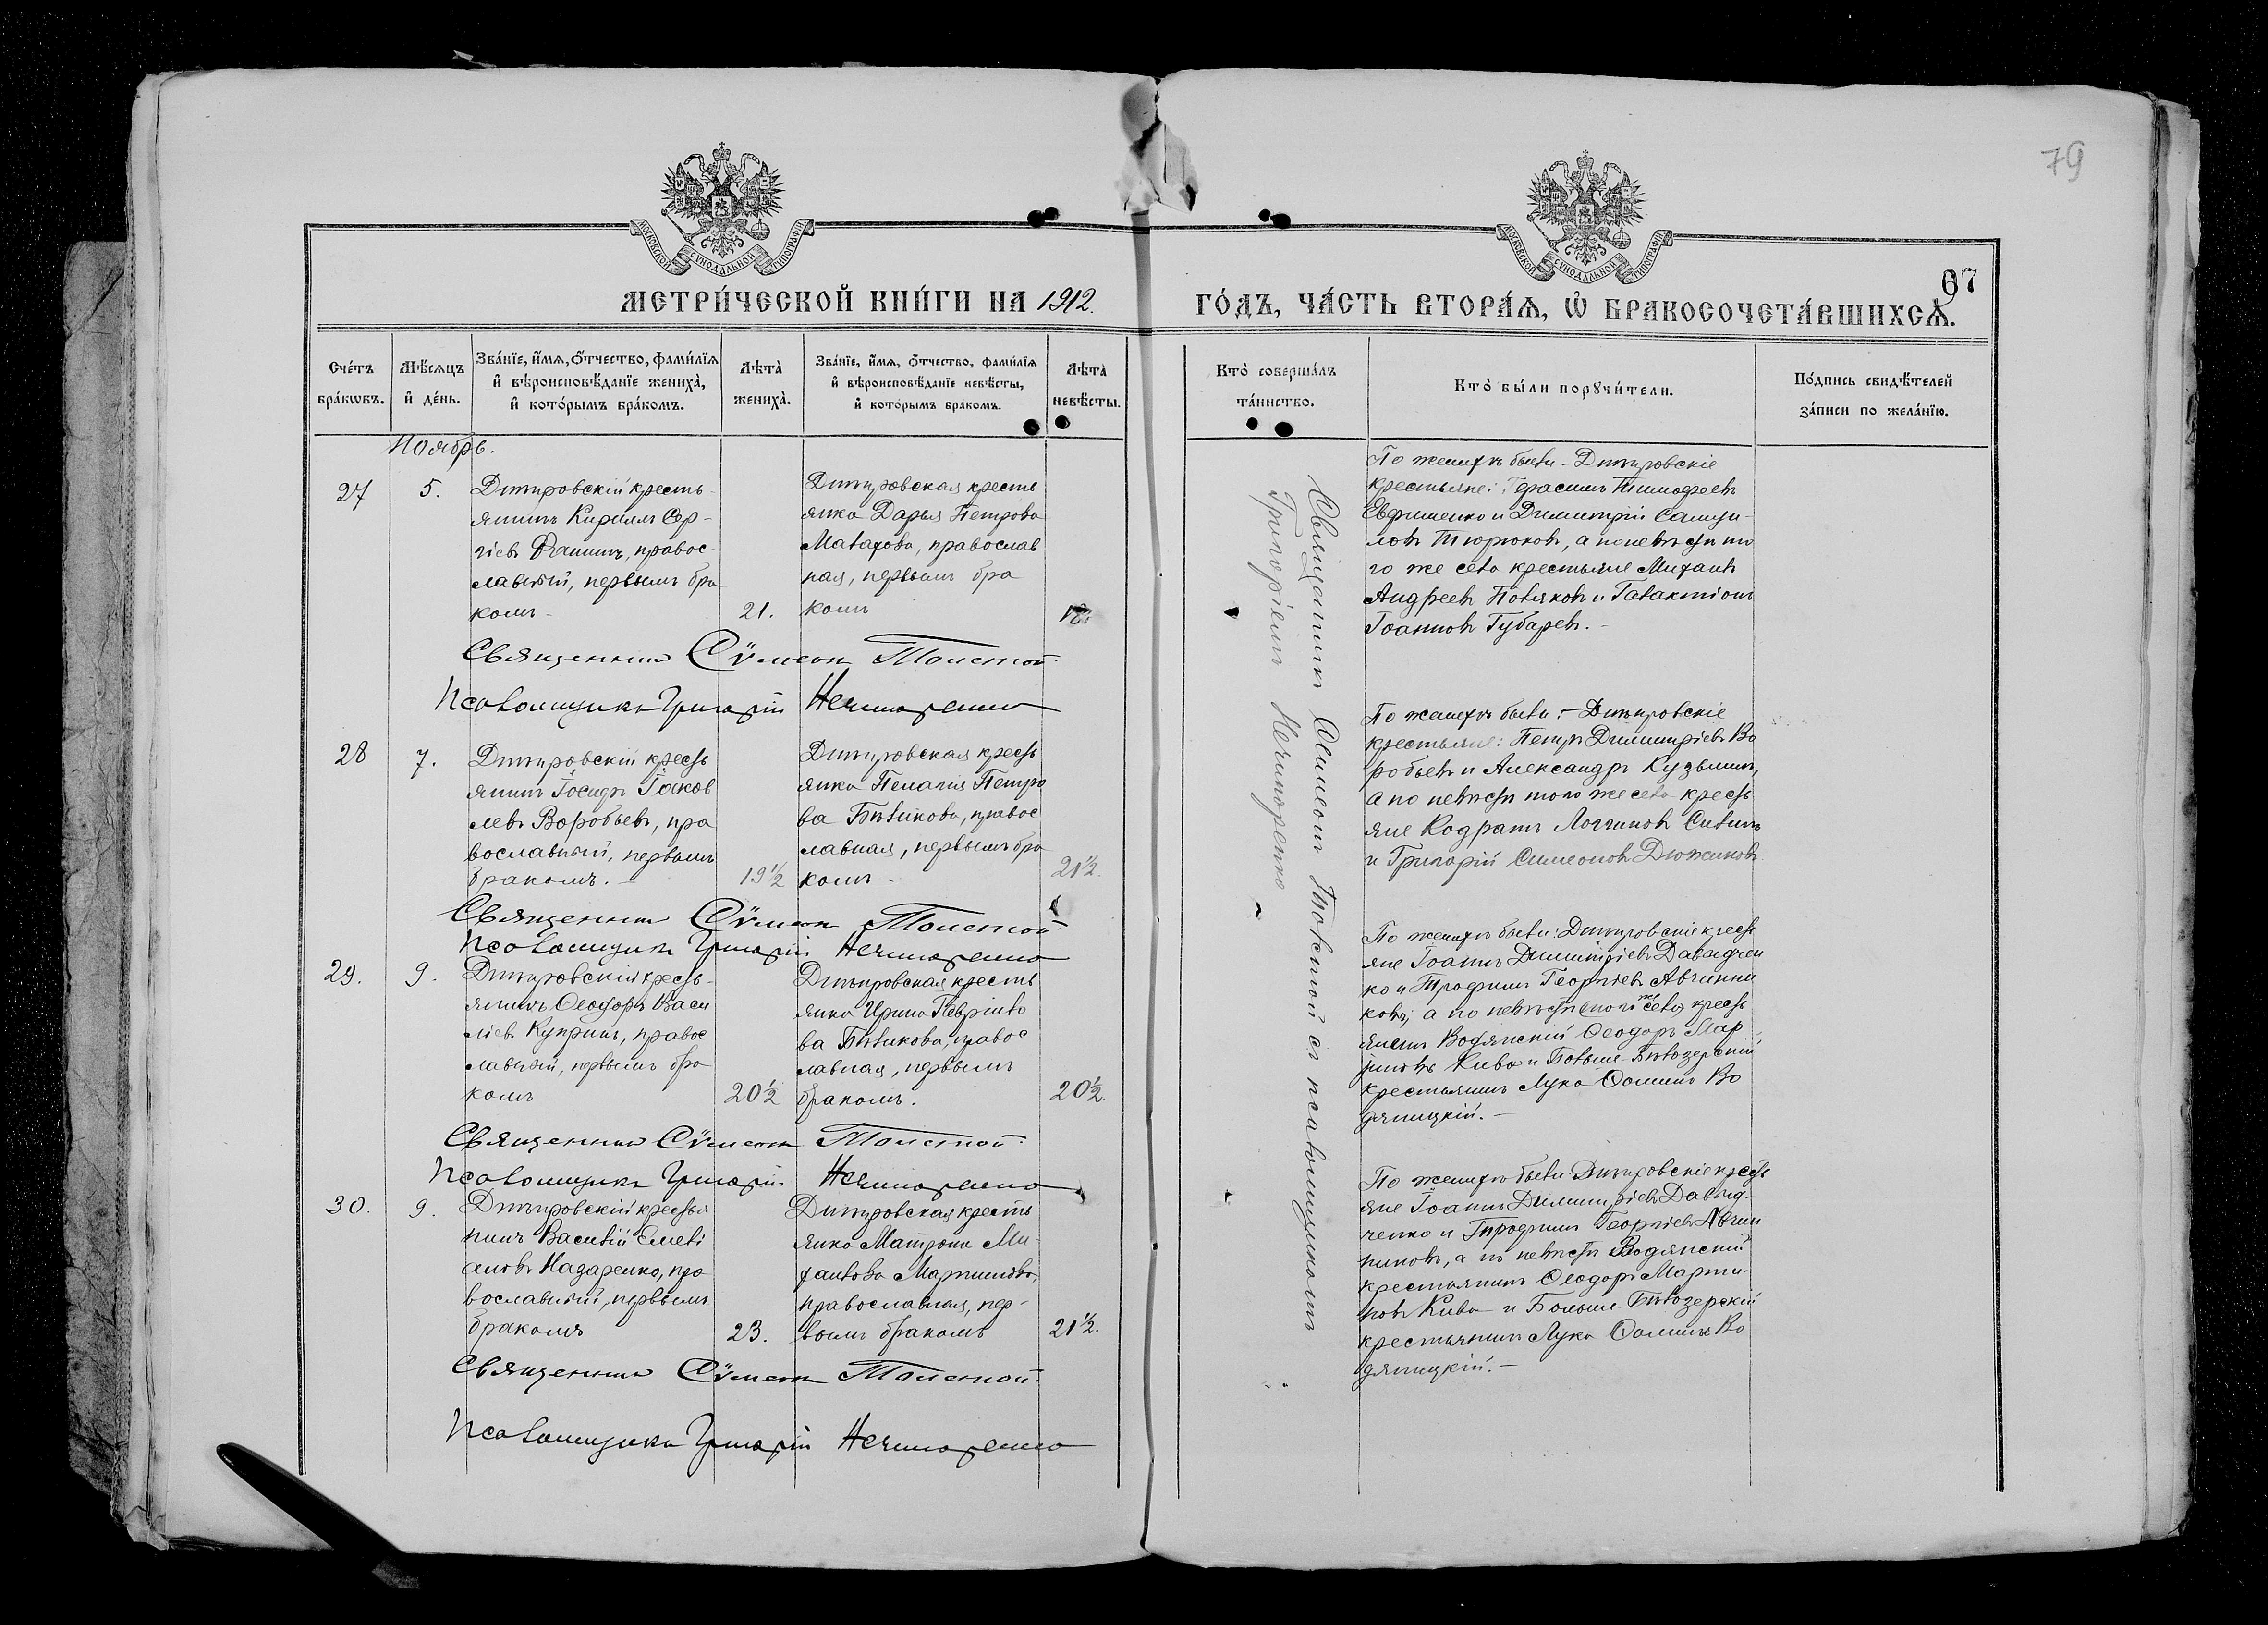 79
67
МОСКОВСКОЙ СУНОДАЛЬНОЙ ТИПОГРАФІИ
МОСКОВСКОЙ СУНОДАЛЬНОЙ ТИПОГРАФІИ
МЕТРИ́ЧЕСКОЙ КНИ́ГИ НА 1912.
ГО́ДЪ, ЧА́СТЬ ВТОРА́Ѧ, Ѡ БРАКОСОЧЕТА́ВШИХСѦ.
Сче́тъ
бра́кѡвъ.
Мѣ́сѧцъ
и де́нь.
Зва́нїе, и́мѧ, о́тчество, фами́лїѧ
и вѣроисповѣ́данїе жениха̀,
и кото́рымъ бра́комъ.
Лѣта̀
жениха̀.
Зва́нїе, и́мѧ, о́тчество, фами́лїѧ
и вѣроисповѣ́данїе невѣ́сты,
и кото́рымъ бра́комъ.
Лѣта̀
невѣ́сты.
Кто̀ соверша́лъ
та́инство.
Кто̀ бы́ли порꙋчи́тели.
По́дпись свидѣ́телей
за́писи по жела́нїю.
Ноябрь.
27
5.
Днѣпровскій кресть-
янинъ Кириллъ Сер-
гіевъ правос
лавный, первымъ бра
комъ
21.
Днѣпровская кресть
янка Дарья Петрова
Малахова, православ
ная, первымъ бра
комъ
18
По женихѣ были - Днѣпровскіе
крестьяне: Герасимъ Тимофеевъ
Евфименко и Димитрій Самуи-
ловъ Тюрюковъ, а по невѣстѣ то
го же села крестьяне Михаилъ
Андреевъ Поляковъ и Галактіонъ
Іоанновъ Губаревъ. -
Священникъ Сѵмеонъ Толстой
Псаломщикъ Григорій Нечипоренко
28
7.
Днѣпровскій кресть
янинъ Іосифъ Іаков
левъ Воробьевъ, пра
вославный, первымъ
бракомъ. -
19½
Днѣпровская кресть
янка Пелагія Петро
ва Бѣликова, правос
лавная, первымъ бра
комъ -
21½.
По женихѣ были: - Днѣпровскіе
крестьяне: Петръ Димитріевъ Во
робьевъ и Александръ Кузьминъ,
а по невѣстѣ того же села кресть
яне Кодратъ Логгиновъ
и Григорій Симеоновъ Дюжиковъ
Священникъ Сѵмеонъ Толстой
Псаломщикъ Григорій Нечипоренко
29.
9.
Днѣпровскій кресть-
янинъ Ѳеодоръ Васи
ліевъ Купринъ, правос
лавный, первымъ бра
комъ
20½
Днѣпровская кресть
янка Ирина Гавріило
ва Бѣликова, правос
лавная, первымъ
бракомъ.
20½.
По женихѣ были: Днѣпровскіе кресть
яне Іоаннъ Димитріевъ Давидчен
ко и Трофимъ Георгіевъ Авчинни
ковъ, а по невѣстѣ
Водянскій Ѳеодоръ Мар
тиновъ Кива и Больше-Бѣлозерскій
крестьянинъ Лука Ѳоминъ Во
дяницкій. -
Священникъ Сѵмеонъ Толстой
Псаломщикъ Григорій Нечипоренко
30.
9.
Днѣпровскій крестья
нинъ Василій Емелі
ановъ Назаренко, пра
вославный, первымъ
бракомъ
23.
Днѣпровская кресть
янка Матрона Ми-
хаилова Мартинова,
православная, пер-
вымъ бракомъ
21½.
По женихѣ были Днѣпровскіе кресть
яне Іоаннъ Димитріевъ Давид-
ченко и Трофимъ Георгіевъ Авчин
никовъ, а по невѣстѣ Водянскій
крестьянинъ Ѳеодоръ Марти-
новъ Кива и Больше Бѣлозерскій
крестьянинъ Лука Ѳоминъ Во
дяницкій. -
Священникъ Сѵмеонъ Толстой
Псаломщикъ Григорій Нечипоренко
Священникъ Симеонъ Толстой съ псаломщикомъ
Григоріемъ Нечипоренко